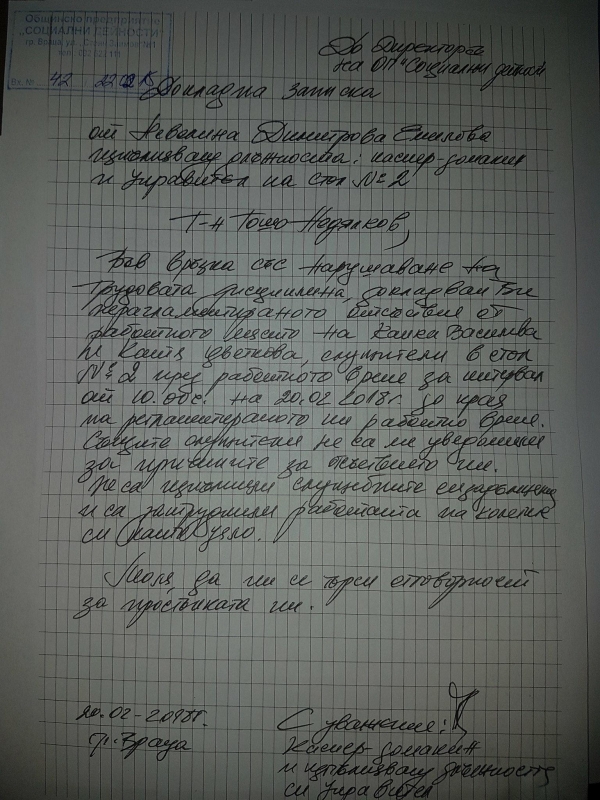 Общинско предприятие
„СОЦИАЛНИ ДЕЙНОСТИ"
гр. Враца, ул.
Вх. № 42 22.02.18
До Директора
на ОП "Социални дейности
Докладна записка
от Невелина Димитрова Емилова
изпълняващ длъжността: касиер-домакин
и Управител на стол № 2
Г-н Тошо Недялков,
Във връзка със нарушаване на
трудовата дисциплина, докладвам Ви
нерагламентираното отсъствие от
работното място на Камка Василева
и Катя Цветкова, служители в стол
№ 2 през работното време за интервал
от 10.00ч. на 20.02.2018г. до края
на регламентираното им работно време.
Същите служители не са ме уведомили
за причините за отсъствието им.
Не са изпълнили служебните си задължения
и са затруднили работата на колегите
си като цяло.
Моля, да им се търси отговорност
за простъпката им.
20.02-2018г.
гр. Враца
С уважение:
Касиер-домакин
и изпълняващ длъжността
си Управител